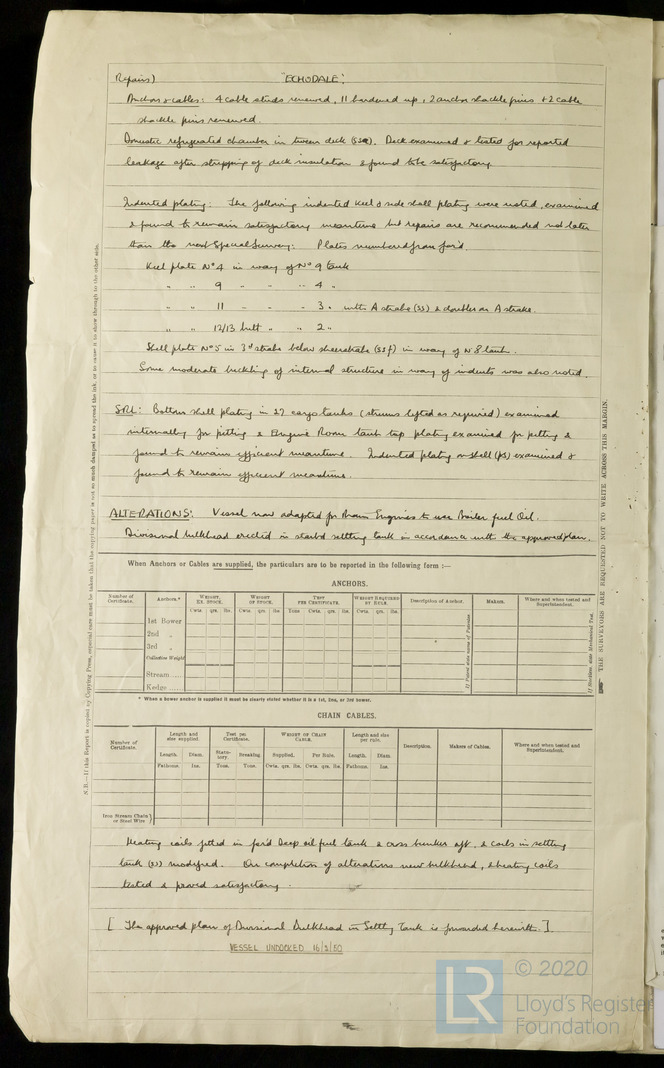 Repairs) "ECHODALE".
Anchors & cables: 4 cable studs renewed, 11 hardened up, 2 anchor shackle pins & 2 cable
shackle pins renewed.
Domestic refrigerated chamber in tween deck (SSA). Deck examined & tested for reported
leakage after stripping of deck insulation & found to be satisfactory.
Indented plating: The following indented keel & side shell plating were noted, examined
& found to remain satisfactory meantime but repairs are recommended not later
than the next Special Survey: Plates numbered from for'd.
Keel plate No 4 in way of No 9 tank
" " 9 " " " 4 "
" " 11 - - " 3 " with A strake (SS) & doubler on A strake.
" " 12/13 butt " " 2 "
Shell plate No 5 in 3rd strake below sheerstrake (SSf) in way of No 8 tank.
Some moderate buckling of internal structure in way of indents was also noted.
SRL: Bottom shell plating in 27 cargo tanks ( lifted as required) examined
internally for pitting & Engine Room tank top plating examined for pitting &
found to remain efficient meantime. Indented plating on shell (ps) examined &
found to remain efficient meantime.
ALTERATIONS: Vessel now adapted for Main Engines to use Boiler fuel Oil.
Divisional bulkhead erected in starb'd settling tank in accordance with the approved plan.
When Anchors or Cables are supplied, the particulars are to be reported in the following form :—
ANCHORS.
Number of Certificate. Anchors.* Weight, Ex. Stock. Weight of Stock. Test per Certificate. Weight Required by Rule. Description of Anchor. Makers. Where and when tested and Superintendent.
Cwts. qrs. lbs. Cwts. qrs. lbs. Tons Cwt. qrs. lbs. Cwts. qrs. lbs.
1st Bower
2nd "
3rd "
Collective Weight
Stream
Kedge
If Patent state name of Patentee
If Stockless state Mechanical Test.
* When a bower anchor is supplied it must be clearly stated whether it is a 1st, 2nd, or 3rd bower.
CHAIN CABLES.
Number of Certificate. Length and size supplied. Test per Certificate. Weight of Chain Cable. Length and size per rule. Description. Makers of Cables. Where and when tested and Superintendent.
Length. Diam. Statutory. Breaking. Supplied. Per Rule. Length. Diam.
Fathoms. Ins. Tons. Tons. Cwts. qrs. lbs. Cwts. qrs. lbs. Fathoms. Ins.
Iron Stream Chain or Steel Wire
Heating coils fitted in for'd Deep oil fuel tank & cross bunker aft, & coils in settling
tank (SS) modified. On completion of alterations new bulkhead, & heating coils
tested & proved satisfactory.
[ The approved plan of Divisional Bulkhead in Settling Tank is forwarded herewith. ]
VESSEL UNDOCKED 16/2/50
N.B.—If this Report is copied by Copying Press, especial care must be taken that the copying paper is not so much damped as to spread the ink, or to cause it to show through to the other side.
THE SURVEYORS ARE REQUESTED NOT TO WRITE ACROSS THIS MARGIN.
LR
© 2020
Lloyd's Register
Foundation